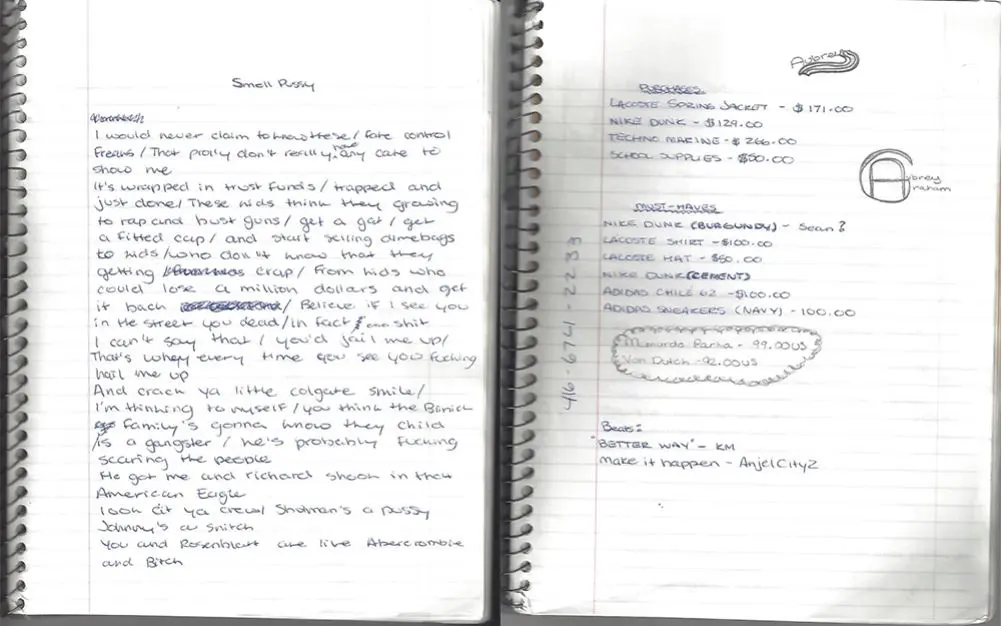 Smell Pussy
I would never claim to know these / fake control
freaks / That prolly don't really have any care to
show me
It's wrapped in trust funds / trapped and
just done / These kids think they growing
to rap and bust guns / get a gat / get
a fitted cap / and start selling dimebags
to kids / who don't know that they
getting crap / from kids who
could lose a million dollars and get
it back / Believe if I see you
in the street you dead / In fact shit
I can't say that / you'd jail me up /
That's whey every time you see you fucking
hail me up
And crack ya little colgate smile /
I'm thinking to myself / you think the
family's gonna know they child
is a gangster / he's probably fucking
scaring the people
He got me and richard shook in that
American Eagle
look at ya crew / Shulman's a pussy
Johnny's a snitch
You and Rosenblatt are like Abercrombie
and Bitch
Aubrey
PURCHASES
LACOSTE SPRING JACKET - $171.00
NIKE DUNK - $129.00
TECHNO MARINE - $266.00
SCHOOL SUPPLIES - $50.00
Aubrey
Graham
MUST-HAVES
NIKE DUNK (BURGUNDY) - Sean?
LACOSTE SHIRT - $100.00
LACOSTE HAT - $50.00
NIKE DUNK (CEMENT)
ADIDAS CHILE 62 - $100.00
ADIDAS SNEAKERS (NAVY) - 100.00
- 99.00US
Von Dutch - 92.00US
Beats:
"BETTER WAY" - KM
make it happen - AnjelCity2